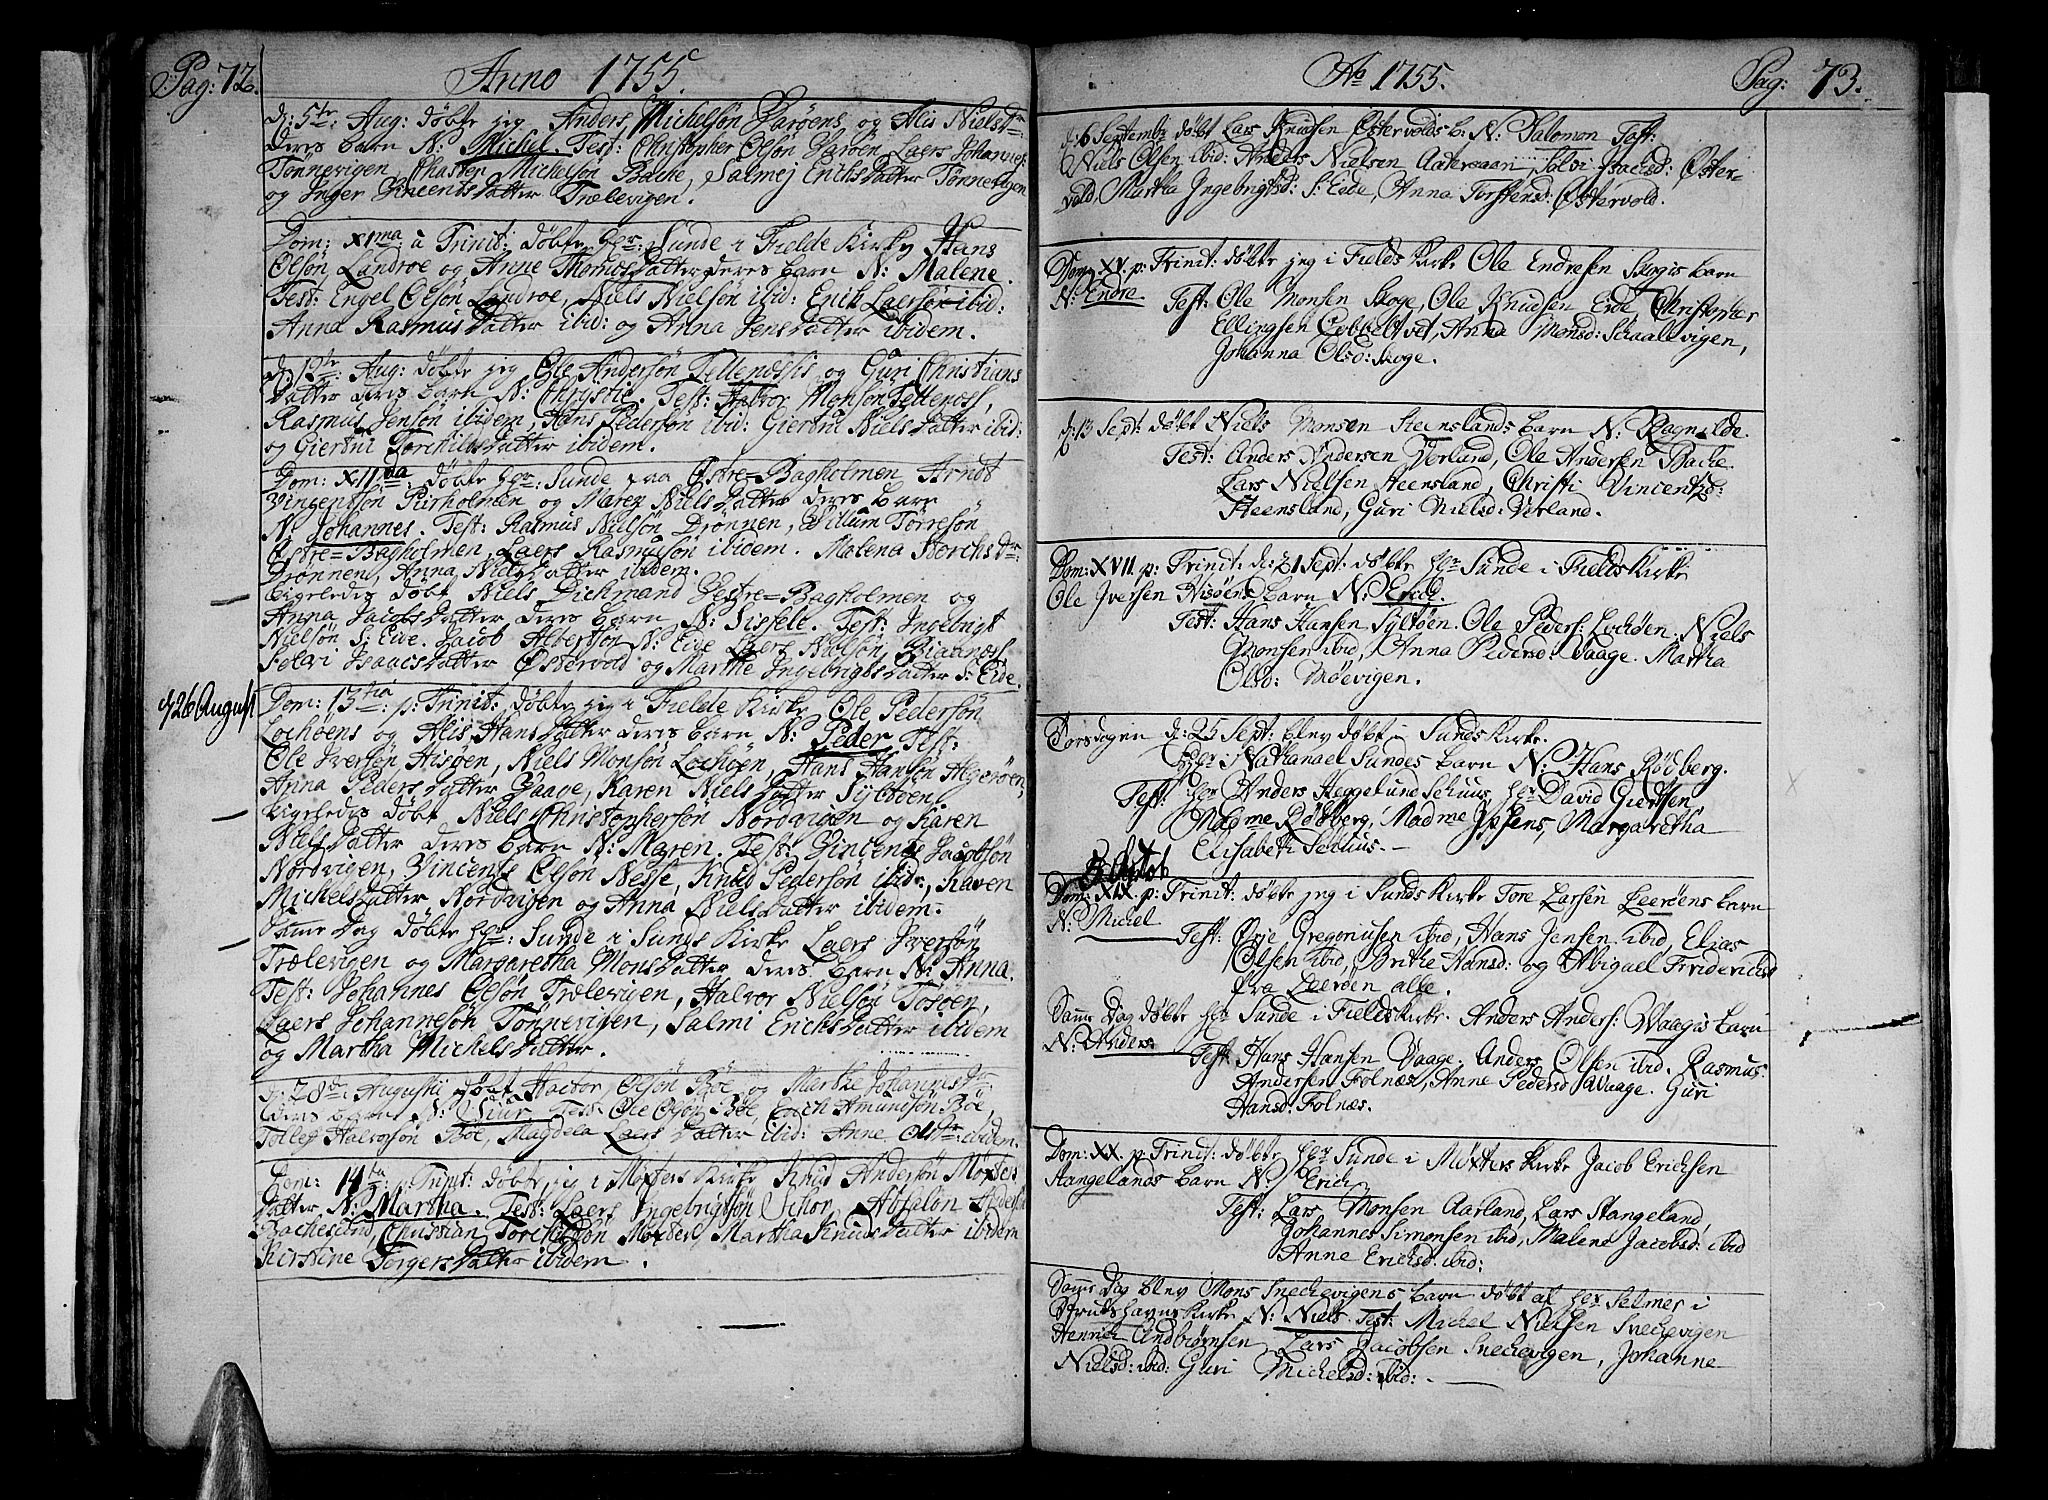 Pag: 72.
Anno 1755.
d: 5te: Aug: døbte jeg Anders Michelsøn Barøens og Alis Nielsdr:
deris barn N: Michel. Test: Christopher Olsøn Barøen, Laers Johannes:
Tønnevigen Chasten Michelsøn Backe, Salmej Erichsdatter Tønnevigen
og Inger Vincentsdatter Trælevigen.
Dom: XIma: a Trinit: døbte Hr: Sunde i Fielde Kirke Hans
Olsøn Landroe og Anne Thomosdatter deres barn N: Malene.
Test: Engel Olsøn Landroe, Niels Nielsøn ibid: Erich Laersøn ibid:
Anna Rasmusdatter ibid: og Anna Jensdatter ibidem.
d: 13te: Aug: døbte jeg Ole Andersøn Tellenessis og Guri Christians
datter deris barn N: Chrystie. Test: Halvor Monsøn Tellenes,
Rasmus Jensøn ibidem, Hans Pedersøn ibid: Giertrui Nielsdatter ibid:
og Giertrui Torchildsdatter ibidem.
Dom: XIIma: døbte Hr: Sunde paa Østre=Bagholmen Arndt
Vingentsøn Pirholmen og Maren Nielsdatter deres barn
N: Johannes. Test: Rasmus Nielsøn Drønnen, Villum Torresøn
Østre=Bagholmen, Laers Rasmusøn ibidem. Malena Storchsdr:
Drønnen, Anna Nielsdatter ibidem.
Ligeledis døbt Niels Dichmand Vestre=Bagholmen og
Anna Jacobsdatter deres barn N: Sissele. Test: Ingebrigt
Nielsøn S: Eide. Jacob Albertsøn N: Eide Laers Nielsøn,
Selvi Isaacsdatter Østervold og Marthe Ingebrigtsdatter S: Eide.
d 26 August
Dom: 13tia: p: Trinit: døbte jeg i Fielde Kirke Ole Pedersøn
Lochøens og Alis Hansdatter deres barn N: Peder, Test:
Ole Iversøn Hisøen, Niels Monsøn Lochøen, Hans Hansøn Algerøen,
Anna Pedersdatter Vaage, Karen Nielsdatter Syltøen,
Ligeledis døbt Niels Christophersøn Nordvigen og Karen
Nielsdatter deres barn N: Maren. Test: Vincents Jacobsøn
Nordvigen, Vincents Olsøn Nesse, Knud Pedersøn ibid:, Karen
Michelsdatter Nordvigen og Anna Nielsdatter ibidem.
Samme Dag døbte Hr: Sunde i Sunds Kirke Laers Iversøn
Trælevigen og Margaretha Monsdatter deres barn N: Anna.
Test: Johannes Olsøn Trælevigen, Halvor Nielsøn Tosøen,
Laers Johannesøn Tønnevigen, Salmi Erichsdatter ibidem
og Martha Michelsdatter.
d: 28de: Augustii døbt Hactor Olsøn Bøe og Marthe Johannisdr
deres barn N: Siur Test: Ole Olsøn Bøe, Erich Amundsøn Bøe,
Tollef Halvorsøn Bøe, Magdela Laersdatter ibid: Anne Olsdr: ibidem.
Dom: 14ta: p: Trinit: døbte jeg i Møxters Kirke Knud Andersøn Møxters
datter N: Martha. Test: Laers Ingebrigtsøn Schor, Absalon Anderss
Bachesund, Christian Torchildsøn Møxter, Martha Knudsdatter ibidem
Kirstine Torgersdatter ibidem.
Ao 1755.
Pag: 73.
d: 6 Septembr døbt Lars Knudsen Østervolds b: N: Salomon Test:
Niels Olsen ibid: Anders Nielsen Selvi Isacksd: Øster-
vold, Martha Ingebrigtsd: S: Eide, Anna Torstensd: Østervold.
Dom: XV. p: Trinit: døbte jeg i Fields Kirke Ole Endresen Skogis barn
N: Endre. Test: Ole Monsen Skoge, Ole Knudsen Eide, Christopher
Ellingsen Cobbeltvet, Anna Monsd: Schaallvigen,
Johanna Olsd: Skoge.
d: 13 Sept: døbt Niels Monsen Steenslands barn N: Ragnilde.
Test: Anders Andersen Verland, Ole Andersen Backe
Lars Nielsen Steensland, Christi Vincentsd:
Steensland, Guri Nielsd: Verland.
Dom: XVII p: Trinit: d: 21 Sept: døbte Hr Sunde i Fields Kirke
Ole Iversen Hisøens barn N: Erich.
Test: Hans Hansen Syltøen. Ole Peders: Lochøen. Niels
Monsen ibid, Anna Pedersd: Vaage. Martha
Olsd: Møevigen.
Torsdagen d: 25 Sept: blev døbt i Sunds Kirke.
Hr Nathanael Sundes barn N: Hans Rødberg.
Test: Hr Anders Heggelund Schiuus, Hr David Giertsen,
Madme Rødberg, Madme Ipsens, Margaretha
Elisabeth Schiuus.
5 Octob
Dom: XIX p: Trinit: døbte jeg i Sunds Kirke Tore Larsen Leerøens barn
N: Michel Test: Ørje Gregoriusen ibid, Hans Jensen ibid, Elias
Olsen ibid, Brithe Hansd: og Abigael Friderichsd
fra Leerøen alle.
Samme Dag døbte Hr Sunde i Fields Kirke. Anders Anders: Vaagis barn
N: Anders. Test: Hans Hansen Vaage. Anders Olsen ibid. Rasmus
Andersen Folnæs, Anne Pedersd Vaage. Guri
Hansd: Folnæs.
Dom: XX. p: Trinit: døbte Hr Sunde i Møxters Kirke Jacob Erichsen
Stangelands barn N: Erich
Test: Lars Monsen Aarland, Lars Stangeland,
Johannes Simonsen ibid, Malene Jacobsd: ibid
Anne Erichsd: ibid:
Samme Dag blev Mons Snechevigens barn døbt af Hr Selmer i
Strudshavns Kirke N: Niels. Test: Michel Nielsen Snechevigen
Henrich Andbiørnsen, Lars Jacobsen Snechevigen, Johanne
Nielsd: ibid: Guri Michelsd: ibid: